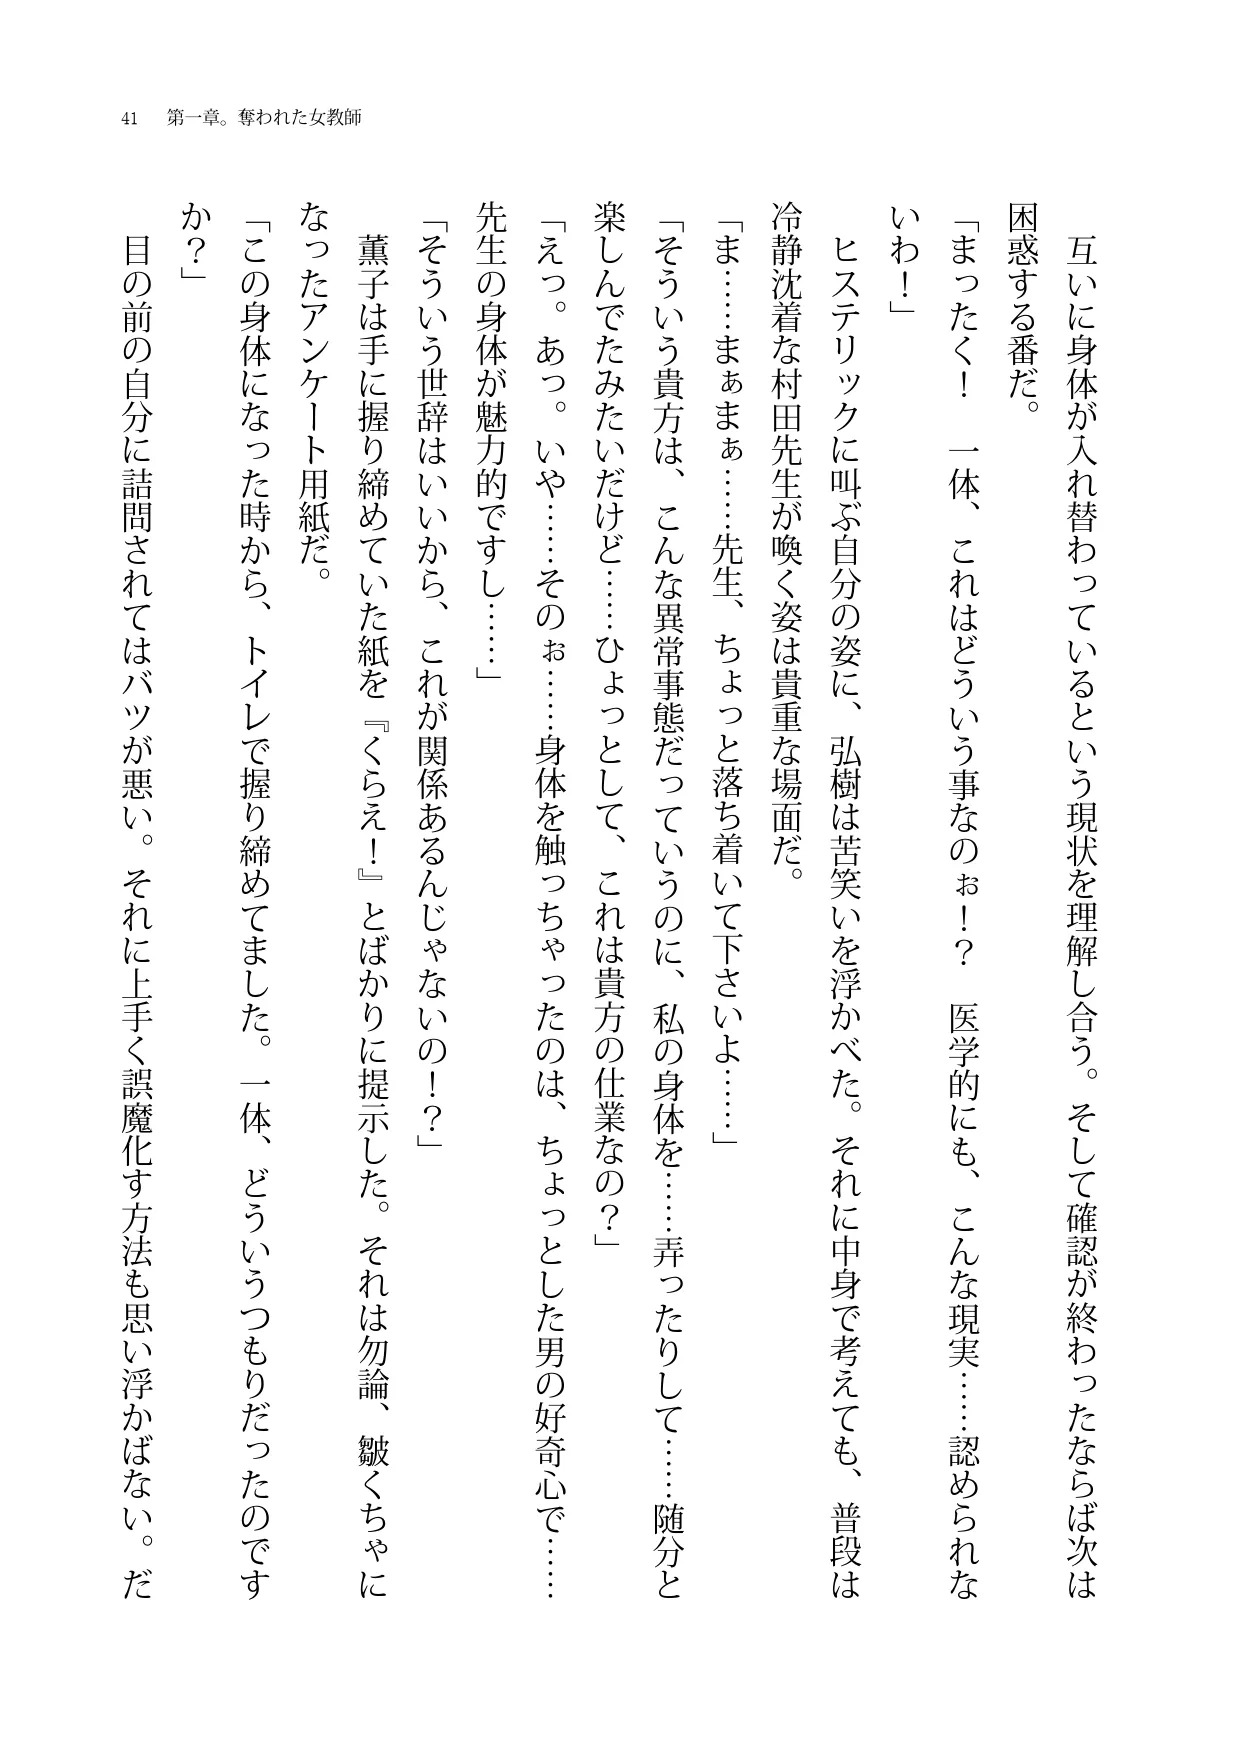 41　第一章。奪われた女教師
　互いに身体が入れ替わっているという現状を理解し合う。そして確認が終わったならば次は
困惑する番だ。
「まったく！　一体、これはどういう事なのぉ！？　医学的にも、こんな現実……認められな
いわ！」
　ヒステリックに叫ぶ自分の姿に、弘樹は苦笑いを浮かべた。それに中身で考えても、普段は
冷静沈着な村田先生が喚く姿は貴重な場面だ。
「ま……まぁまぁ……先生、ちょっと落ち着いて下さいよ……」
「そういう貴方は、こんな異常事態だっていうのに、私の身体を……弄ったりして……随分と
楽しんでたみたいだけど……ひょっとして、これは貴方の仕業なの？」
「えっ。あっ。いや……そのぉ……身体を触っちゃったのは、ちょっとした男の好奇心で……
先生の身体が魅力的ですし……」
「そういう世辞はいいから、これが関係あるんじゃないの！？」
　薫子は手に握り締めていた紙を『くらえ！』とばかりに提示した。それは勿論、皺くちゃに
なったアンケート用紙だ。
「この身体になった時から、トイレで握り締めてました。一体、どういうつもりだったのです
か？」
　目の前の自分に詰問されてはバツが悪い。それに上手く誤魔化す方法も思い浮かばない。だ